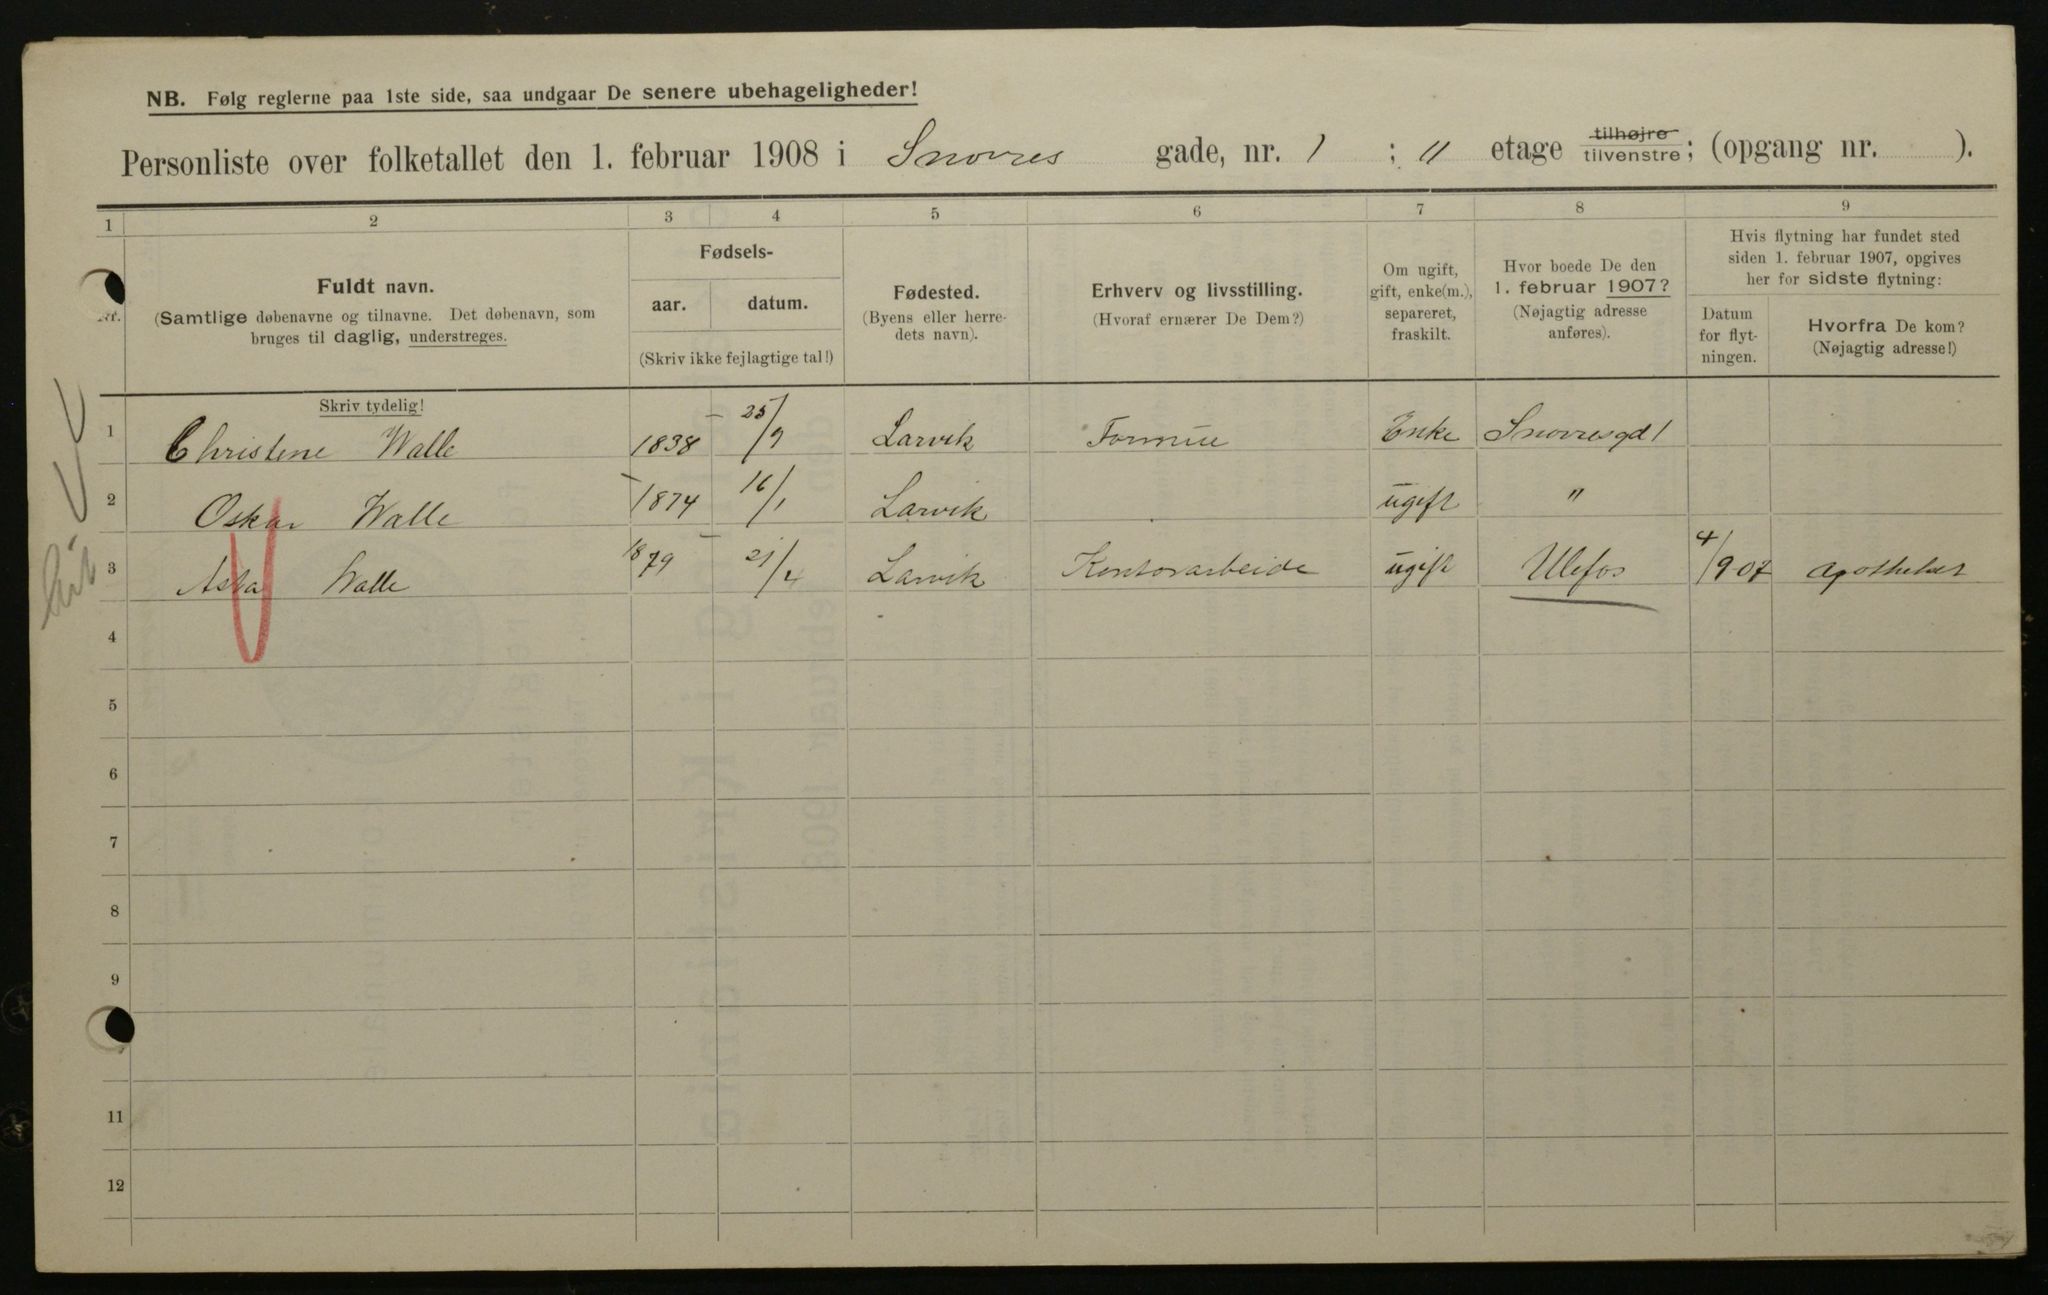 NB. Følg reglerne paa 1ste side, saa undgaar De senere ubehageligheder!
Personliste over folketallet den 1. februar 1908 i Snorres gade, nr. 1 ; 11 etage tilhøjre tilvenstre; (opgang nr. ).
1 2 3 4 5 6 7 8 9
Nr.
Fuldt navn.
(Samtlige døbenavne og tilnavne. Det døbenavn, som
bruges til daglig, understreges.
Fødsels-
aar. datum.
(Skriv ikke fejlagtige tal!)
Fødested.
(Byens eller herre-
dets navn).
Erhverv og livsstilling.
(Hvoraf ernærer De Dem?)
Om ugift,
gift, enke(m.),
separeret,
fraskilt.
Hvor boede De den
1. februar 1907?
(Nøjagtig adresse
anføres).
Hvis flytning har fundet sted
siden 1. februar 1907, opgives
her for sidste flytning:
Datum
for flyt-
ningen.
Hvorfra De kom?
(Nøjagtig adresse!)
Skriv tydelig!
1 Christine Walle 1838 25/9 Larvik Formue Enke Snorresgd 1
2 Oskar Walle 1874 16/1 Larvik ugift "
3 Asta Walle 1879 21/4 Larvik Kontorarbeide ugift Ulefos 4/907 Apotheket
4
5
6
7
8
9
11
12